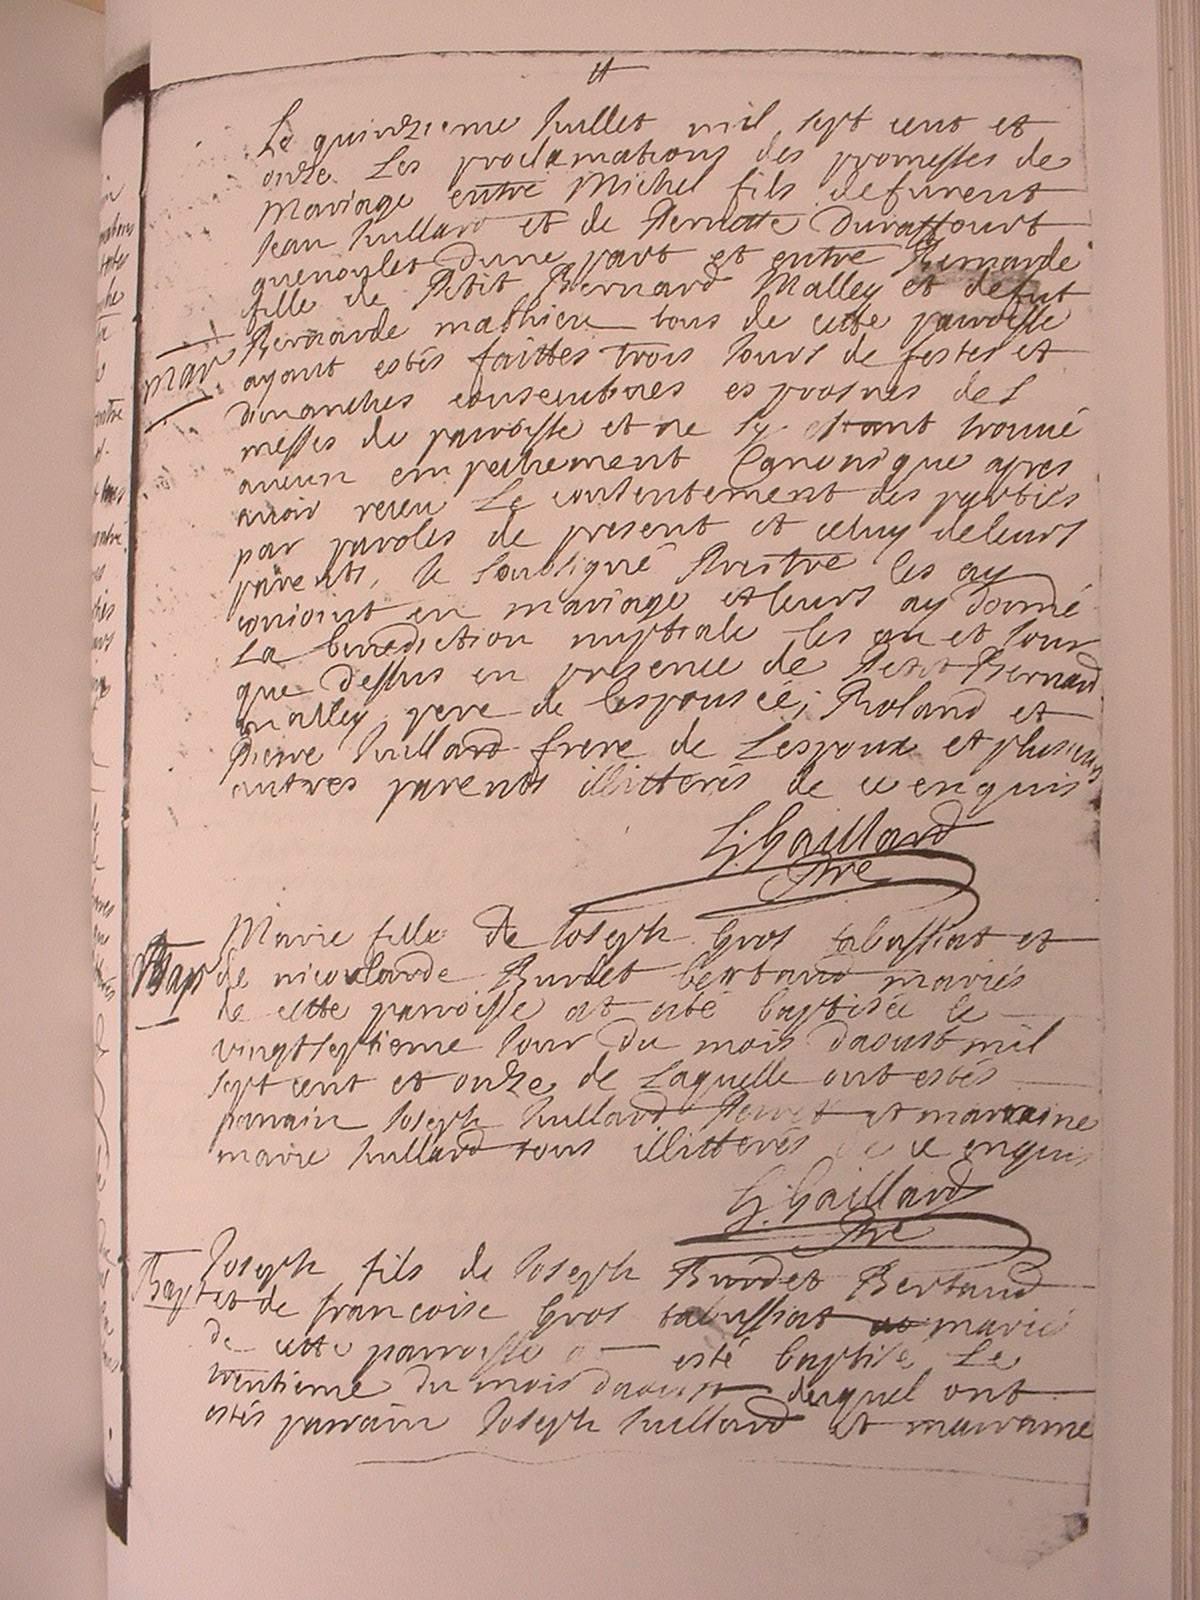 Le quinzieme Juillet mil sept cent et
onze Les proclamations des promesses de
Mariage entre Michel fils defurent
Jean Juilland et de Pernette
dune part et entre Bernarde
fille de Petit Bernard Malley et defut
Mar
Bernarde mathieu tous de cette parroisse
ayant estés faittes trois Jours de festes et
dimanches consecutives es prosnes des
messes de parroisse et ne sy estant trouué
aucun empechement Canonique apres
auoir receu Le consentement des parties
par paroles de present et celuy de leurs
parents, Je soubsigné Prestre les ay
conioint en mariage et leurs ay donné
La benediction nuptiale les an et Jour
que dessus en presence de Petit Bernard
malley, pere de lespousée; Roland et
Pierre Juilland frere de Lespoux et plusieurs
autres parents illitterés de ce enquis
G. Gaillard
Pre
Marie fille de Joseph Gros tabussiat et
Bap
de nicoularde Burdet bertand mariés
de cette parroisse at esté baptisée le
vingtseptieme Jour du mois daoust mil
sept cent et onze de Laquelle ont estés
parrain Joseph Juilland Perret et marraine
marie Juilland tous illitterés de ce enquis
G. Gaillard
Pre
Joseph fils de Joseph Burdet Bertand
Bapt
et de francoise Gros tabussiat mariés
de cette parroisse esté baptisé Le
trentieme du mois daoust duquel ont
estés parrain Joseph Juilland et marraine